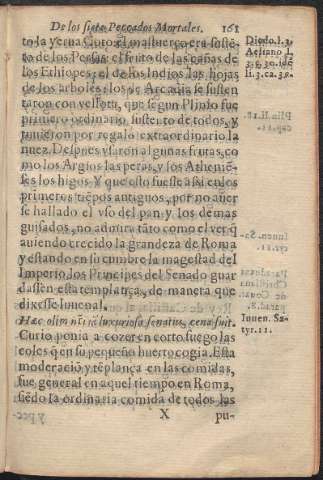 De los siete Peccados Mortales. 161
to la yerua Cuto: el mastuerço era sustẽ
to de los Persas: el fruto de las cañas de
los Ethiopes: el de los Indios las hojas
de los arboles: los de Arcadia se susten
taron con vellota, que segun Plinio fue
primero ordinario sustento de todos, y
tuuieron por regalo extraordinario la
nuez. Despues vsaron algunas frutas, co
mo los Argios las peras, y los Atheniẽ-
ses los higos. Y que esto fuesse assi en los
primeros tiẽpos antiguos, por no auer
se hallado el vso del pan, y los demas
guisados, no admira tãto como el ver q̃
auiendo crecido la grandeza de Roma
y estando en su cumbre la magestad del
Imperio, los Principes del Senado guar
dassen esta templança, de manera que
dixesse Iuuenal.
Hæc olim luxuriosa senatus, cena fuit.
Curio ponia a cozer en corto fuego las
coles q̃ en su pequeño huerto cogia. Esta
moderació y tẽplança en las comidas,
fue general en aquel tiempo en Roma,
siẽdo la ordinaria comida de todos las
X pu-
Diodo. l. 3.
Aeliano l.
3. g. 39. idẽ
li. 3. ca. 39.
Iuuen. Sa-
tyr. 11.